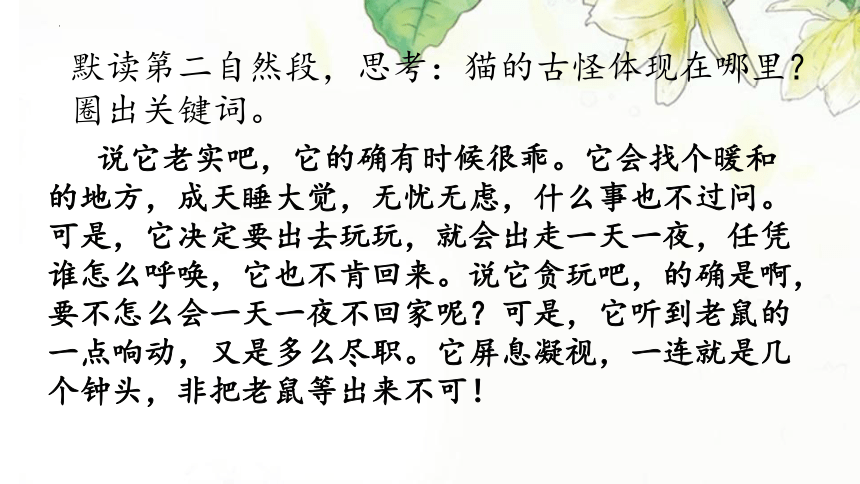 默读第二自然段，思考：猫的古怪体现在哪里？
圈出关键词。
说它老实吧，它的确有时候很乖。它会找个暖和
的地方，成天睡大觉，无忧无虑，什么事也不过问。
可是，它决定要出去玩玩，就会出走一天一夜，任凭
谁怎么呼唤，它也不肯回来。说它贪玩吧，的确是啊，
要不怎么会一天一夜不回家呢？可是，它听到老鼠的
一点响动，又是多么尽职。它屏息凝视，一连就是几
个钟头，非把老鼠等出来不可！